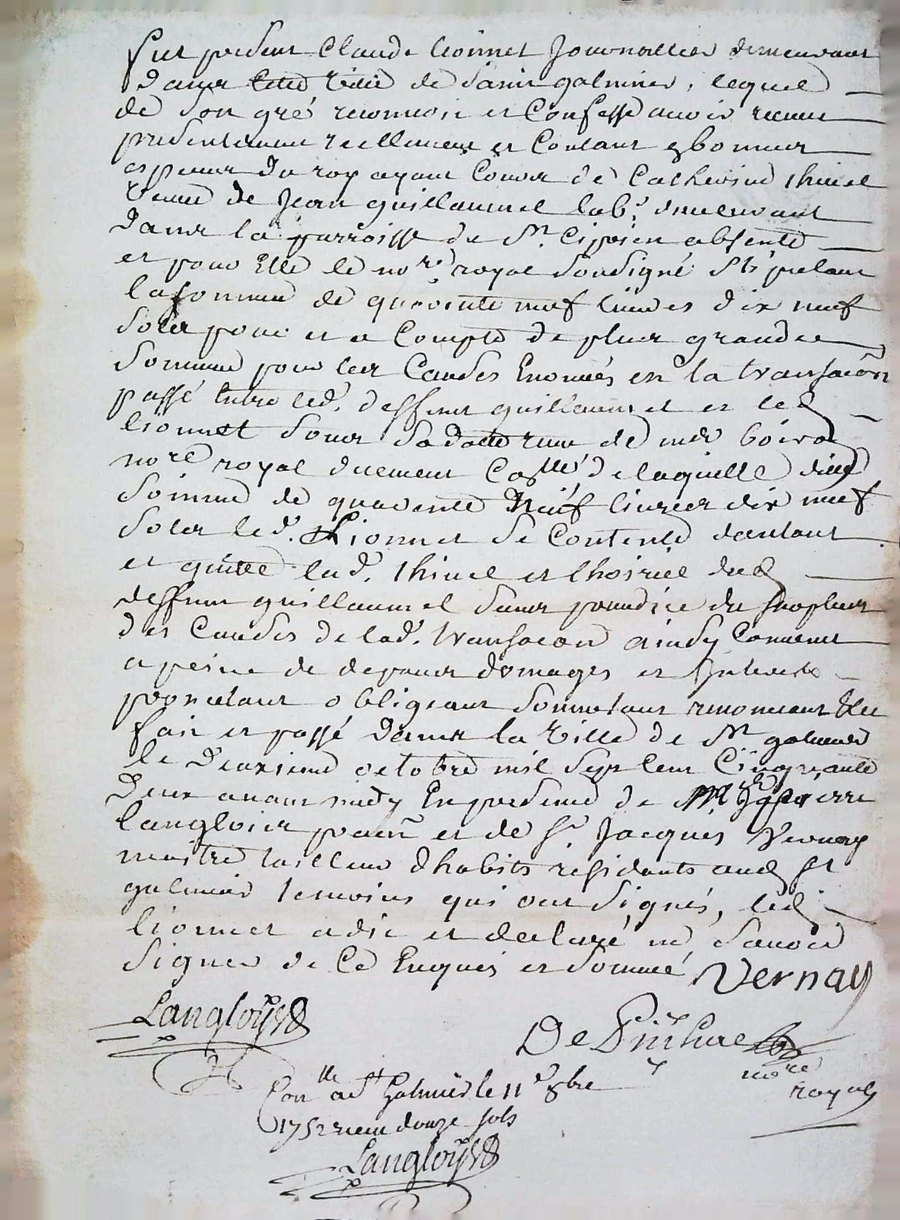 fut present Claude Lionnet Journallier demeurant
dans cette ville de saint galmier, lequel
de son gré reconnoit et Confesse avoir receu
presentement reellement et Contant en bonnes
especes du roy ayant Cours de Catherine thivel
veuve de Jean guillaumet lab.r demeurant
dans la parroisse de St. Ciprien absente
et pour Elle le no.re royal soussigné stipulant
la somme de quarente neuf livres dix neuf
sols pour et a Compte de plus grande
somme pour les Causes Enoncés en la transaction
passé Entre led. deffunt guillaumet et led.
Lionnet sous sa datte reçue de me
nore royal duement de laquelle ditte
somme de quarente neuf livres dix neuf
sols led. Lionnet se Contente dautant
et quitte lad. thivel et lhoirie dud.
deffunt guillaumet sans prejudice du surplus
des Causes de lad. transacon ainsy Convenu
a peine de depans domages et Interets
procedant obligeant soumetant renonceant &c
fait et passé dans la ville de St galmier
le deuxieme octobre mil sept cent Cinquante
deux avant midy En presence de Mre pierre
Langlois et de Sr. Jacques Vernay
maitre tailleur dhabits residants aud. St
galmier temoins qui ont signés, led.
lionnet a dit et declaré ne savoir
signer de Ce Enquis et sommé, Vernay
Langloys
nore
royal
Con.lle a St Galmier le 11e 8bre
1752 receu douze sols
Langloys